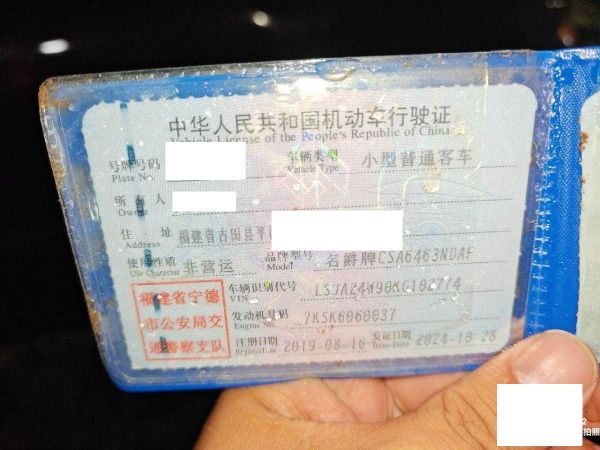 中华人民共和国机动车行驶证
Vehicle License of the People's Republic of China
号牌号码 车辆类型 小型普通客车
Plate No. Vehicle Type
所有人
Owner
住址 福建省古田县平
Address
使用性质 非营运 品牌型号 名爵牌CSA6463NDAF
Use Character Model
福建省宁德
市公安局交
通警察支队
车辆识别代号
VIN
发动机号码 7KSK6060037
Engine No.
注册日期 2019-08-16 发证日期 2024-10-28
Register Date Issue Date
拍照